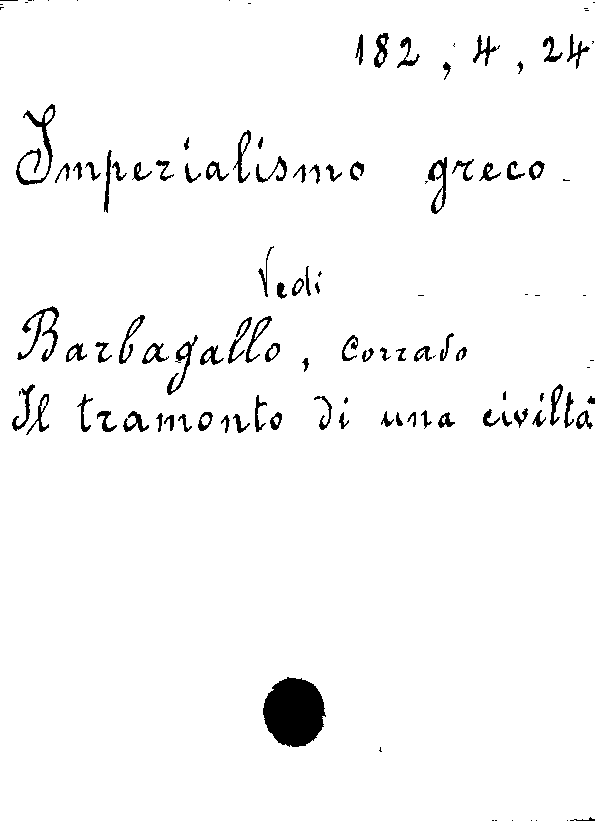 182, 4, 24
Imperialismo greco
Vedi
Barbagallo, Corrado
Il tramonto di una civiltà